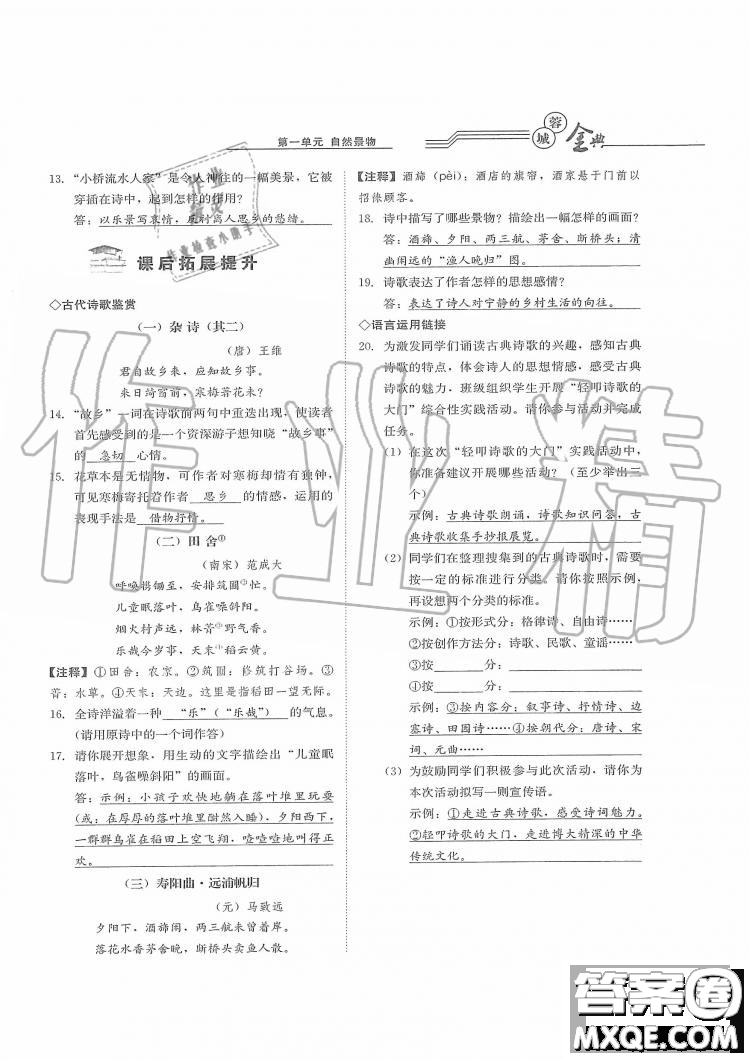 第一单元 自然景物
蓉城金典
13. “小桥流水人家”是令人神往的一幅美景，它被
穿插在诗中，起到怎样的作用？
答：以乐景写哀情，反衬离人思乡的愁绪。
课后拓展提升
◇古代诗歌鉴赏
（一）杂 诗（其二）
（唐）王维
君自故乡来，应知故乡事。
来日绮窗前，寒梅著花未？
14. “故乡”一词在诗歌前两句中重迭出现，使读者
首先感受到的是一个资深游子想知晓“故乡事”
的 急切 心情。
15. 花草本是无情物，可作者对寒梅却情有独钟，
可见寒梅寄托着作者 思乡 的情感，运用的
表现手法是 借物抒情。
（二）田 舍①
（南宋）范成大
呼唤携锄至，安排筑圃②忙。
儿童眠落叶，鸟雀噪斜阳。
烟火村声远，林菁③野气香。
乐哉今岁事，天末④稻云黄。
【注释】①田舍：农家。②筑圃：修筑打谷场。③
菁：水草。④天末：天边。这里是指稻田一望无际。
16. 全诗洋溢着一种 “乐”（“乐哉”） 的气息。
（请用原诗中的一个词作答）
17. 请你展开想象，用生动的文字描绘出“儿童眠
落叶，鸟雀噪斜阳”的画面。
答：示例：小孩子欢快地躺在落叶堆里玩耍
（或：在厚厚的落叶堆里酣然入睡），夕阳西下，
一群群鸟雀在稻田上空飞翔，喳喳喳地叫得正
欢。
（三）寿阳曲·远浦帆归
（元）马致远
夕阳下，酒旆闲，两三航未曾着岸。
落花水香茅舍晚，断桥头卖鱼人散。
【注释】酒旆（pèi）：酒店的旗帘，酒家悬于门前以
招徕顾客。
18. 诗中描写了哪些景物？描绘出一幅怎样的画面？
答：酒旆、夕阳、两三航、茅舍、断桥头；清
幽闲远的“渔人晚归”图。
19. 诗歌表达了作者怎样的思想感情？
答：表达了诗人对宁静的乡村生活的向往。
◇语言运用链接
20. 为激发同学们诵读古典诗歌的兴趣，感知古典
诗歌的特点，体会诗人的思想情感，感受古典
诗歌的魅力，班级组织学生开展“轻叩诗歌的
大门”综合性实践活动。请你参与活动并完成
任务。
（1）在这次“轻叩诗歌的大门”实践活动中，
你准备建议开展哪些活动？（至少举出三
个）
示例：古典诗歌朗诵，诗歌知识问答，古
典诗歌收集手抄报展览。
（2）同学们在整理搜集到的古典诗歌时，需要
按一定的标准进行分类。请你按照示例，
再设想两个分类的标准。
示例：①按形式分：格律诗、自由诗……
②按创作方法分：诗歌、民歌、童谣……
③按____分：____
④按____分：____
示例：③按内容分：叙事诗、抒情诗、边
塞诗、田园诗……④按朝代分：唐诗、宋
词、元曲……
（3）为鼓励同学们积极参与此次活动，请你为
本次活动拟写一则宣传语。
示例：①走进古典诗歌，感受诗词魅力。
②轻叩诗歌的大门，走进博大精深的中华
传统文化。
作业精
答案圈
MXQE.COM